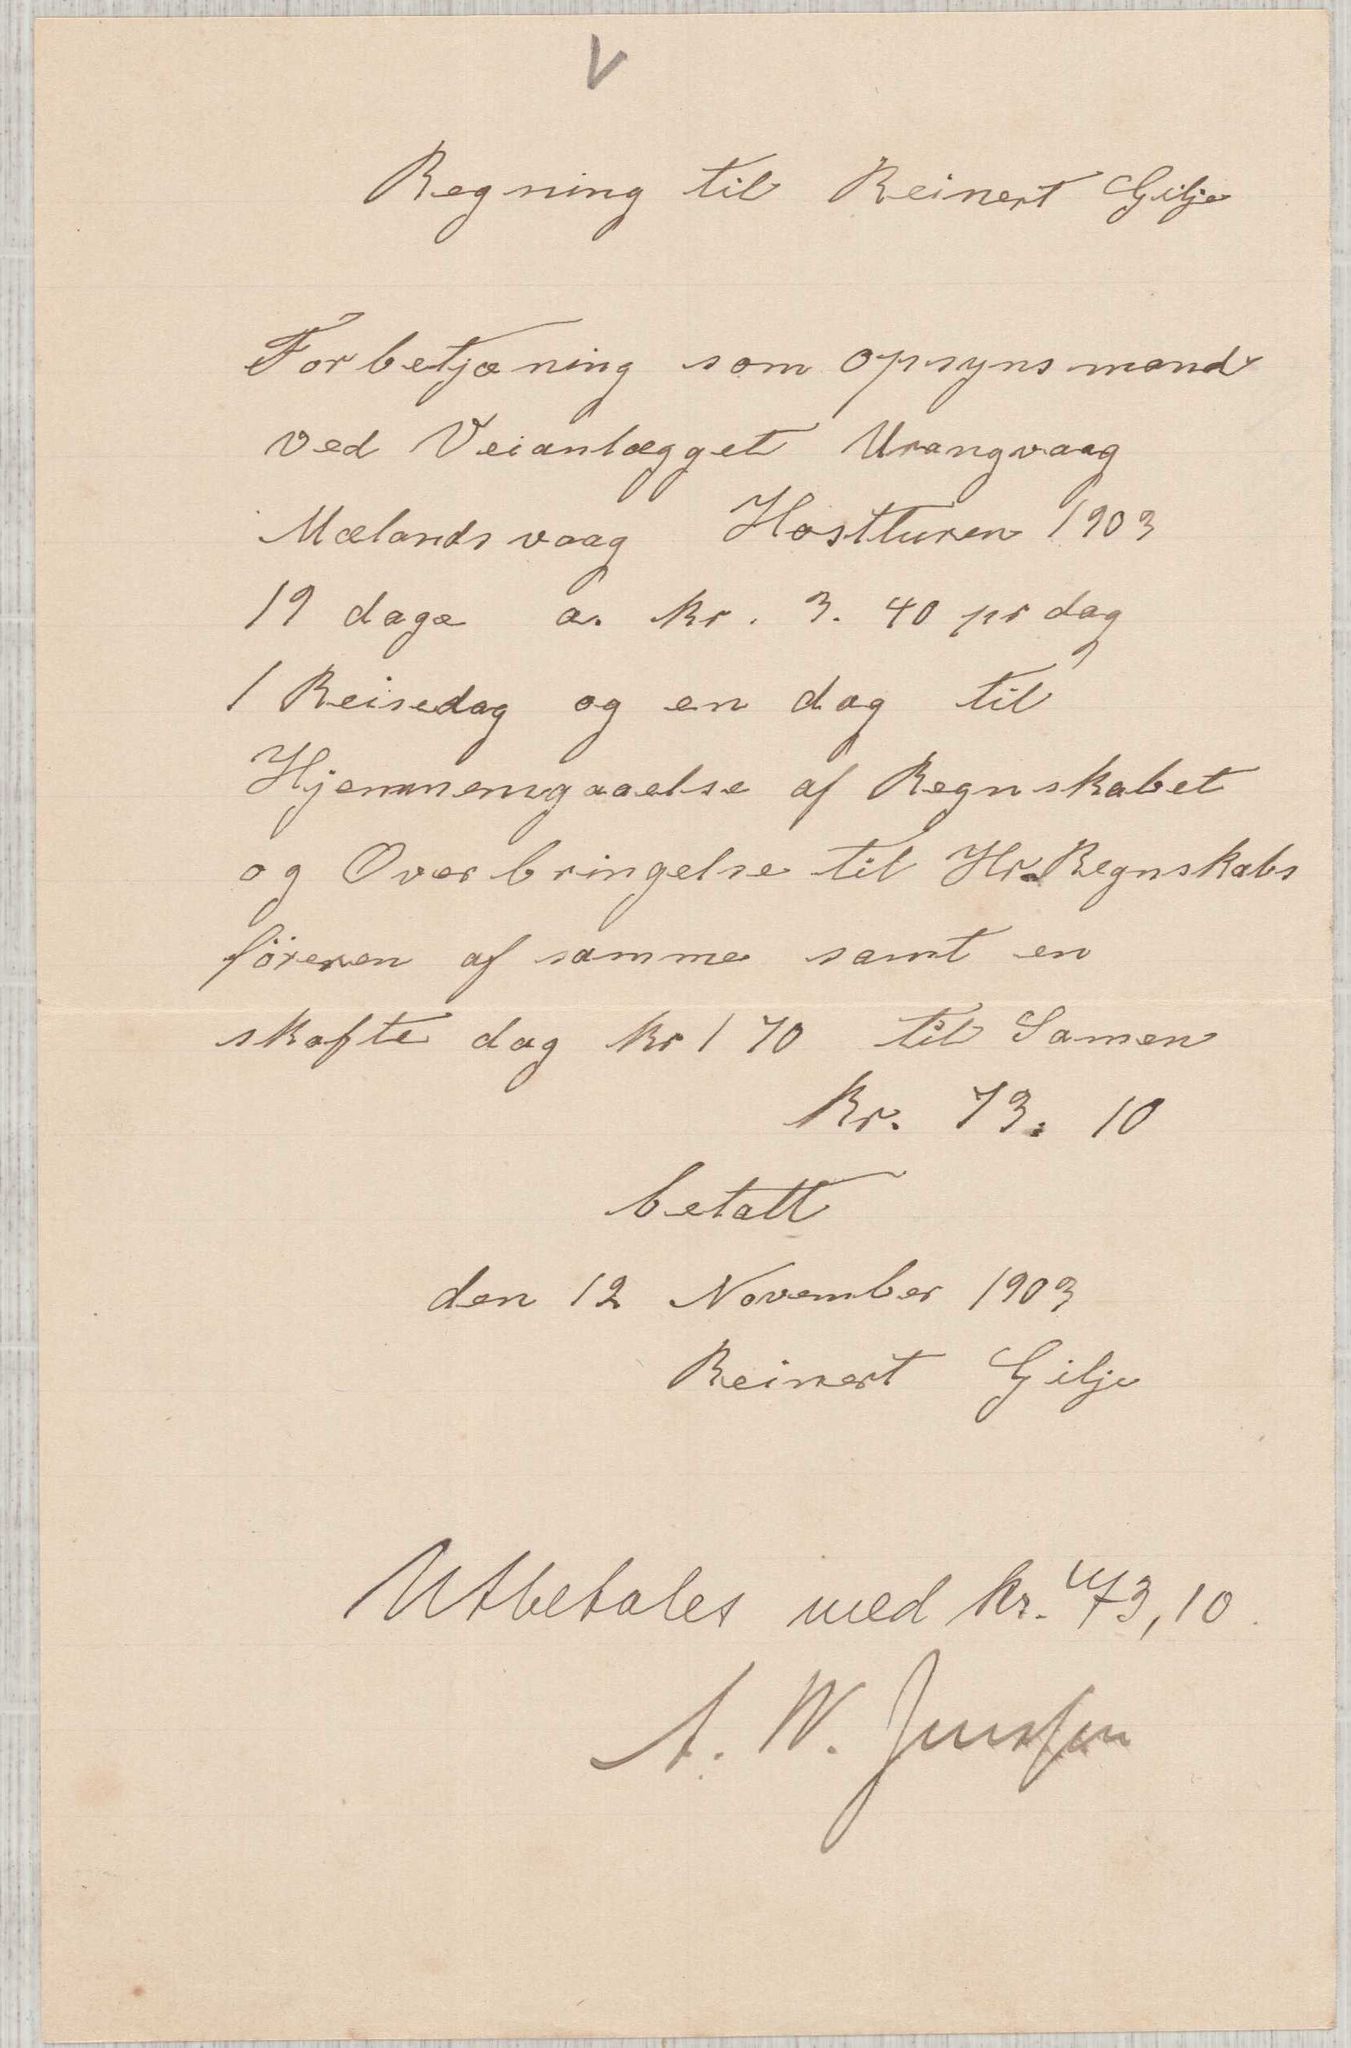 V
Regning til Reinert Gilje
For betjæning som opsynsmand
ved Veianlægget Urangvaag
Mælandsvaag Høstturen 1903
19 dage a. kr. 3.40 pr dag
1 Reisedag og en dag til
Hjennemgaaelse af Regnskabet
og Overbringelse til Hr. Regnskabs
föreren af samme samt en
skafte dag kr 1 70 til Samen
kr. 73. 10
betalt
den 12 November 1903
Reinert Gilje
Utbetales med kr. 73,10.
A. W. Jenssen